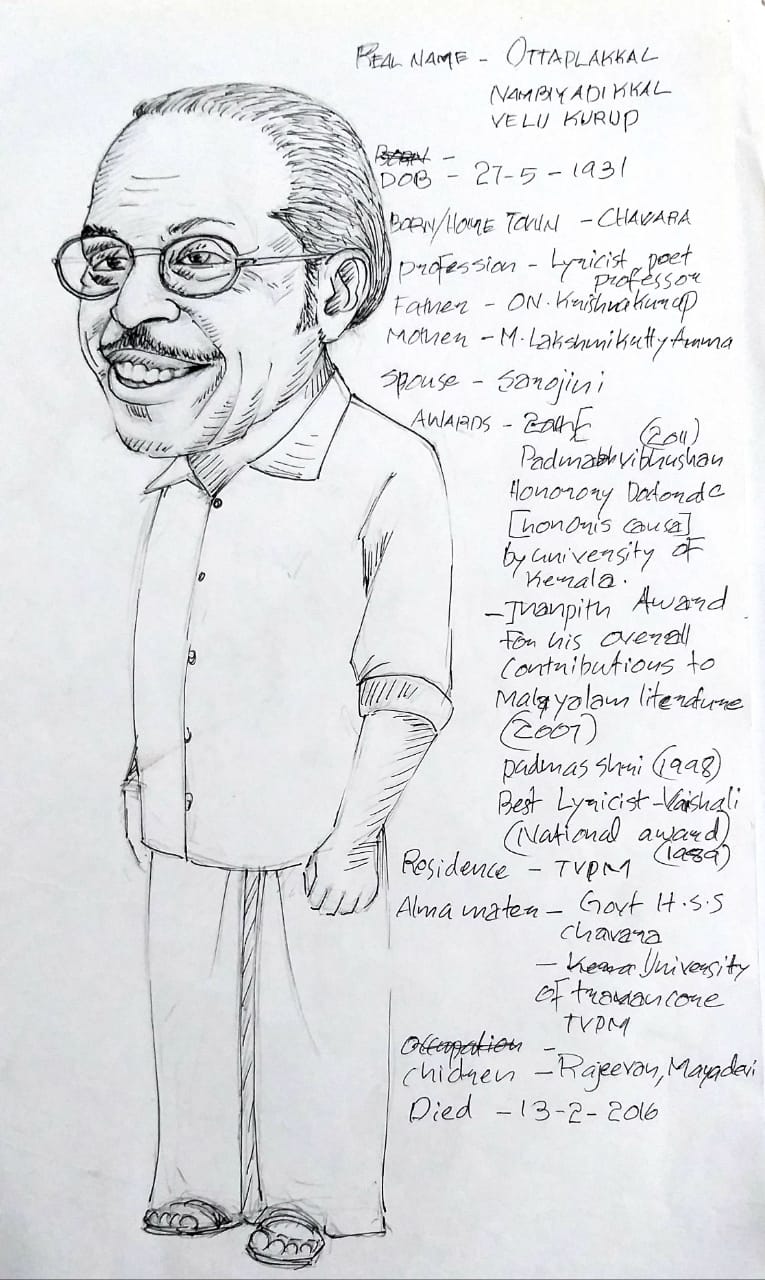 REAL NAME - OTTAPLAKKAL
NAMBIYADIKKAL
VELU KURUP
BORN -
DOB - 27-5-1931
BORN/HOME TOWN - CHAVARA
Profession - Lyricist, poet
professor
Father - O.N. Krishnakurup
Mother - M. Lakshmikutty Amma
Spouse - Sarojini
AWARDS -
(2011)
Padmabhvibhushan
Honorary Datorate
[honoris causa]
by university of
Kerala.
- Jnanpith Award
For his overall
contributions to
Malayalam literature
(2007)
padmas shri (1998)
Best Lyricist - Vaishali
(National award)
(1989)
Residence - TVPM
Alma mater - Govt H.S.S
chavara
- Kera University
of travancore
TVPM
Occupation -
Chidren - Rajeevan, Mayadevi
Died - 13-2-2016